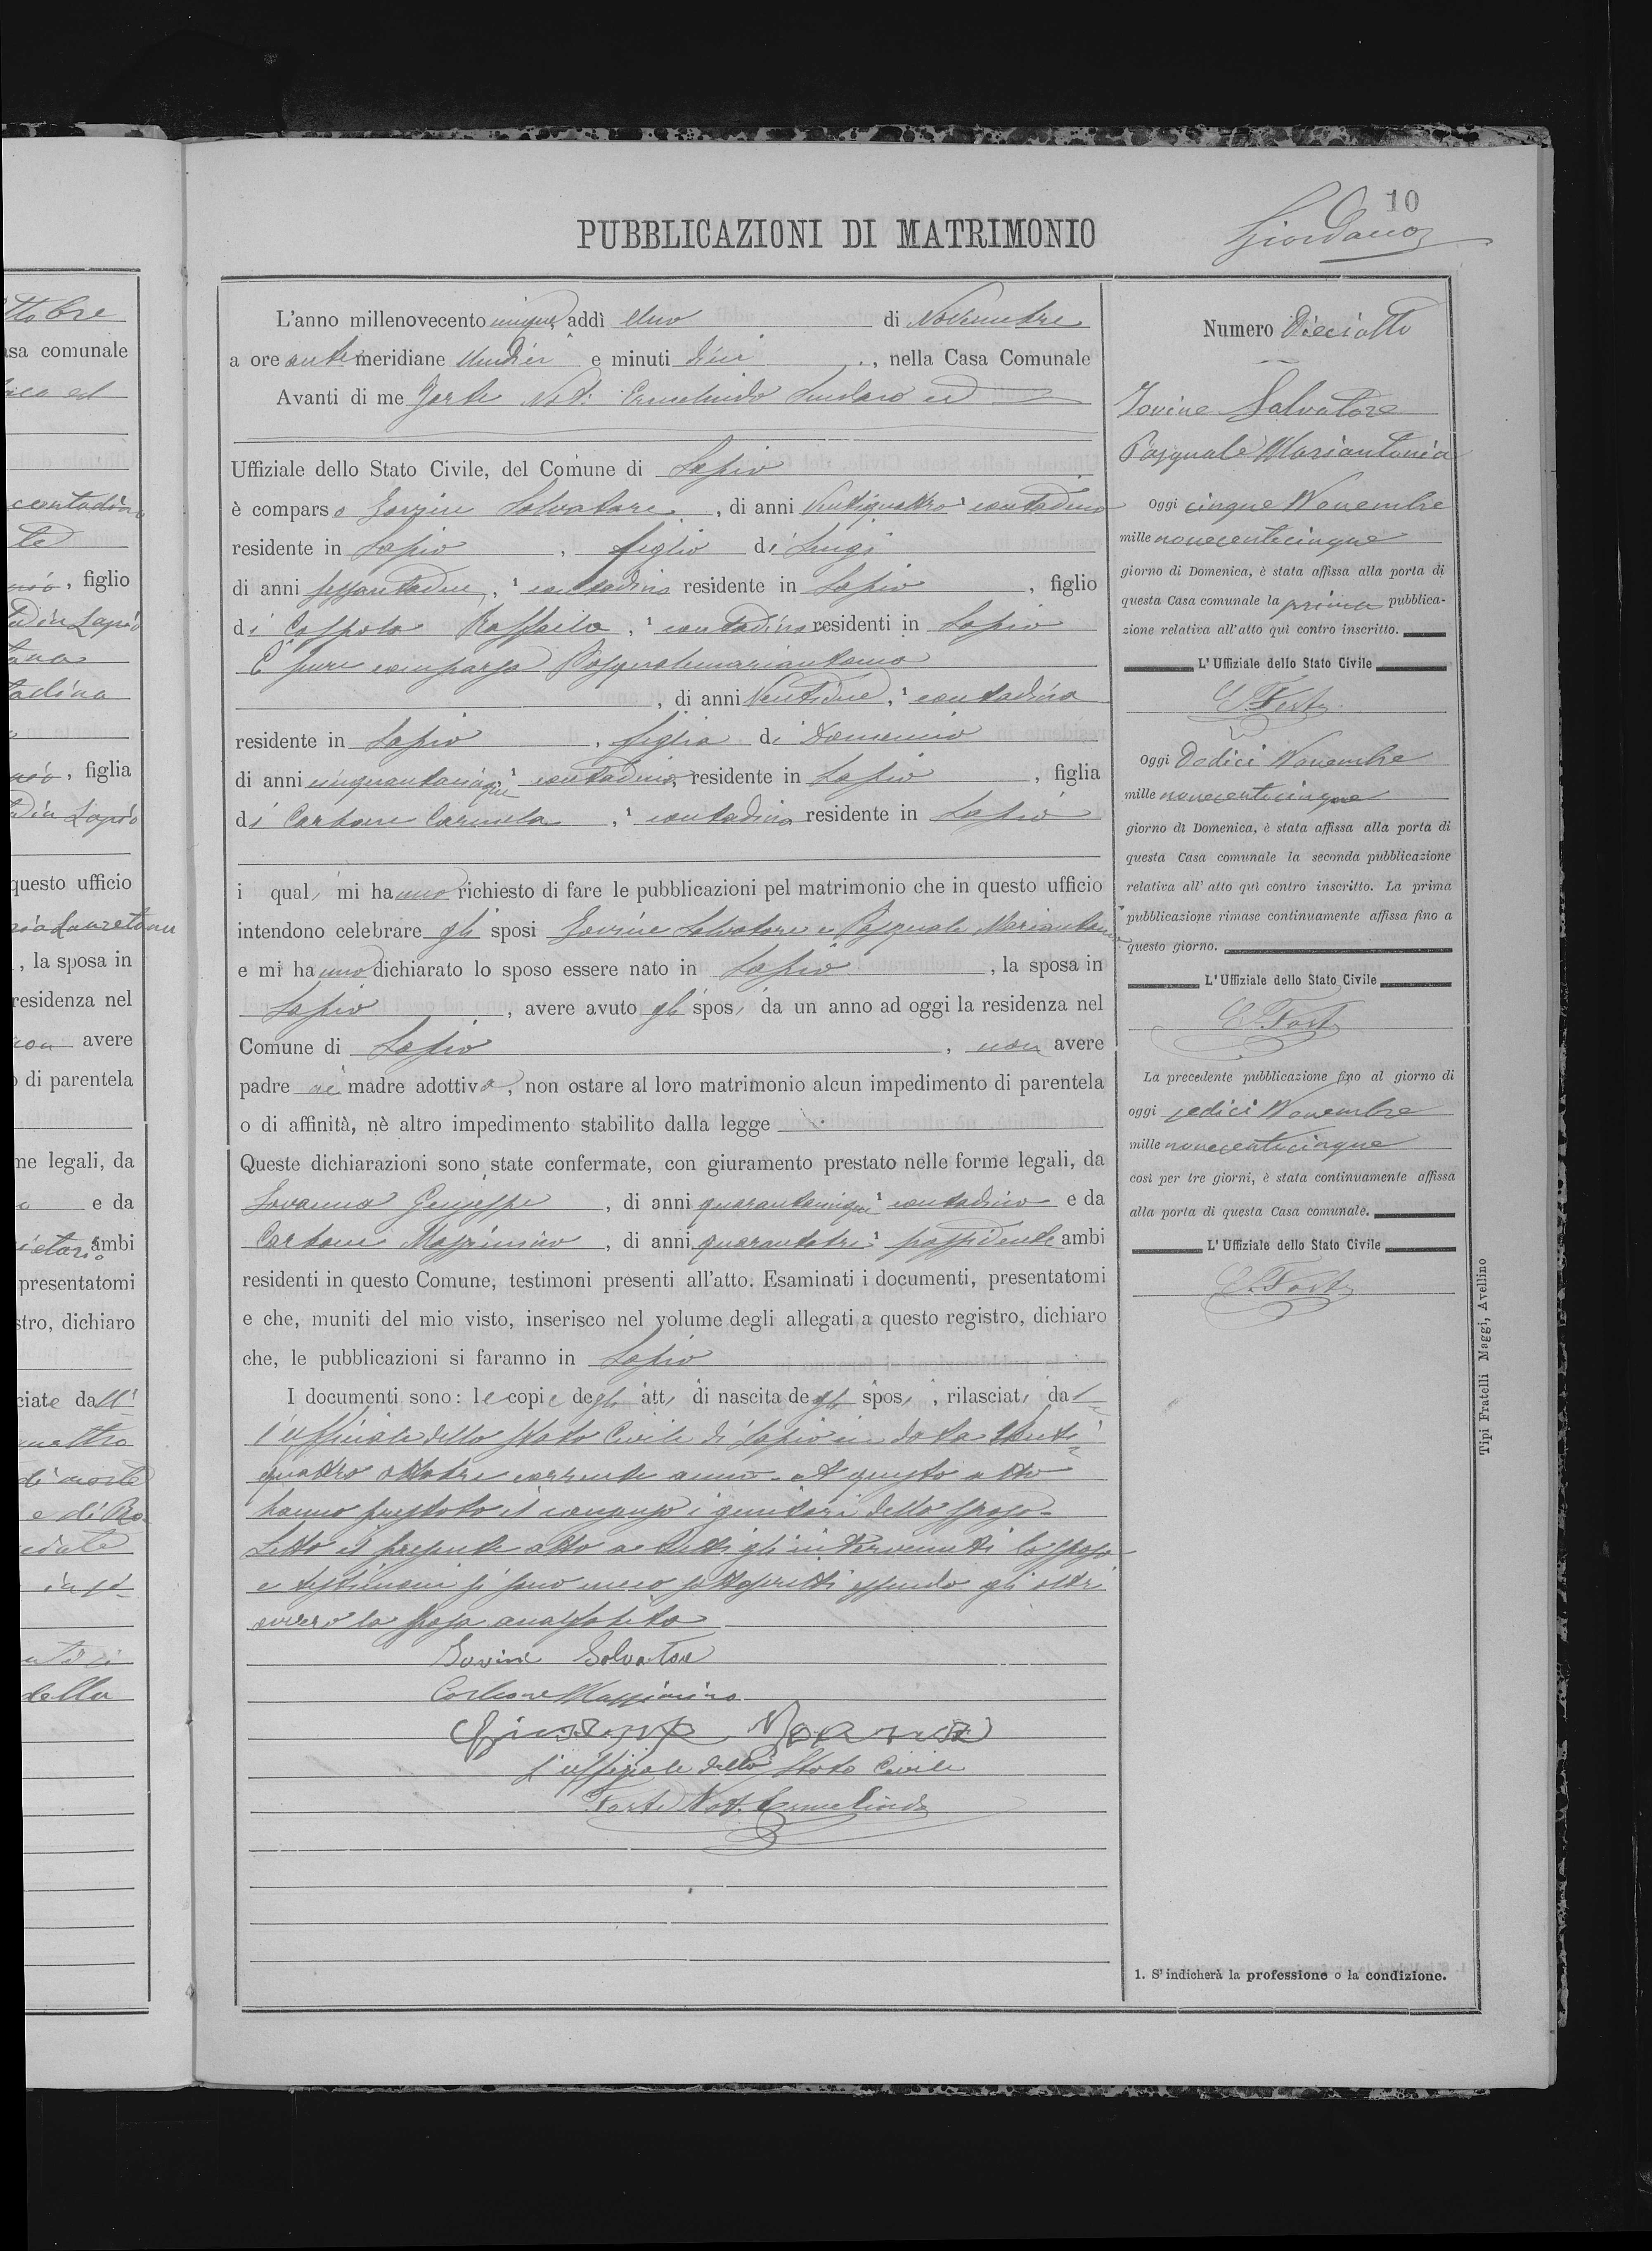 ttobre
asa comunale
contadin
te
, figlio
tadina
, figlia
questo ufficio
, la sposa in
residenza nel
non avere
di parentela
me legali, da
e da
ambi
presentatomi
stro, dichiaro
ciate dall'
di morte
della
10
Giordano
PUBBLICAZIONI DI MATRIMONIO
L'anno millenovecento cinque, addì Uno di Novembre
a ore antimeridiane Undici e minuti dieci, nella Casa Comunale
Avanti di me Forte Not: Ermelindo Sindaco ed
Uffiziale dello Stato Civile, del Comune di Lapio
è comparso Iovine Salvatore, di anni Ventiquattro ¹ contadino
residente in Lapio, figlio di Luigi
di anni sessantadue, ¹ contadino residente in Lapio, figlio
di Coppola Raffaela, ¹ contadina residenti in Lapio
È pure comparsa Pasqualemariantonia
, di anni Ventidue, ¹ contadina
residente in Lapio, figlia di Domenico
di anni cinquantacinque ¹ contadino, residente in Lapio, figlia
di Carbone Carmela, ¹ contadina residente in Lapio
i quali mi hanno richiesto di fare le pubblicazioni pel matrimonio che in questo ufficio
intendono celebrare gli sposi Iovine Salvatore e Pasquale Mariantonia
e mi hanno dichiarato lo sposo essere nato in Lapio, la sposa in
Lapio, avere avuto gli sposi da un anno ad oggi la residenza nel
Comune di Lapio, non avere
padre nè madre adottiva, non ostare al loro matrimonio alcun impedimento di parentela
o di affinità, nè altro impedimento stabilito dalla legge
Queste dichiarazioni sono state confermate, con giuramento prestato nelle forme legali, da
Iovanna Giuseppe, di anni quarantacinque ¹ contadino e da
Carbone Massimino, di anni quarantatre ¹ possidente ambi
residenti in questo Comune, testimoni presenti all'atto. Esaminati i documenti, presentatomi
e che, muniti del mio visto, inserisco nel volume degli allegati a questo registro, dichiaro
che, le pubblicazioni si faranno in Lapio
I documenti sono: le copie degli atti di nascita degli sposi, rilasciati dal
l'uffiziale dello Stato Civile di Lapio in data Venti
quattro ottobre corrente anno. A questo atto
hanno prestato il consenso i genitori dello sposo.
Letto il presente atto a tutti gli intervenuti lo sposo
e testimoni si sono meco sottoscritti essendo gli altri
ovvero la sposa analfabeta
Iovine Salvatore
Carbone Massimino
L'uffiziale dello Stato Civile
Forte Not. Ermelindo
Numero Dieciotto
Iovine Salvatore
Pasquale Mariantonia
Oggi cinque Novembre
mille novecentocinque
giorno di Domenica, è stata affissa alla porta di
questa Casa comunale la prima pubblica-
zione relativa all'atto quì contro inscritto.
L'Uffiziale dello Stato Civile
E. Forte
Oggi Dodici Novembre
mille novecentocinque
giorno di Domenica, è stata affissa alla porta di
questa Casa comunale la seconda pubblicazione
relativa all' atto quì contro inscritto. La prima
pubblicazione rimase continuamente affissa fino a
questo giorno.
L'Uffiziale dello Stato Civile
E. Forte
La precedente pubblicazione fino al giorno di
oggi sedici Novembre
mille novecentocinque
così per tre giorni, è stata continuamente affissa
alla porta di questa Casa comunale.
L'Uffiziale dello Stato Civile
E. Forte
1. S'indicherà la professione o la condizione.
Tipi Fratelli Maggi, Avellino